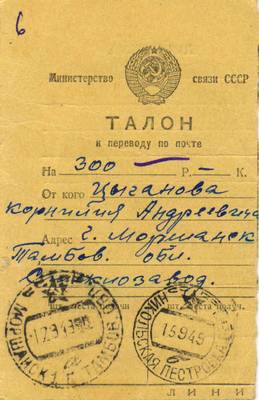 6
Министерство связи СССР
ТАЛОН
к переводу по почте
На 300 — Р. — К.
От кого Цыганова
Корнилия Андреевича
Адрес г. Моршанск
Тамбов. обл.
МОРШАНСК ТАМБОВ
НИКОЛЬСКАЯ ПЕСТРОВКА
15 9 49
ЛИНИ